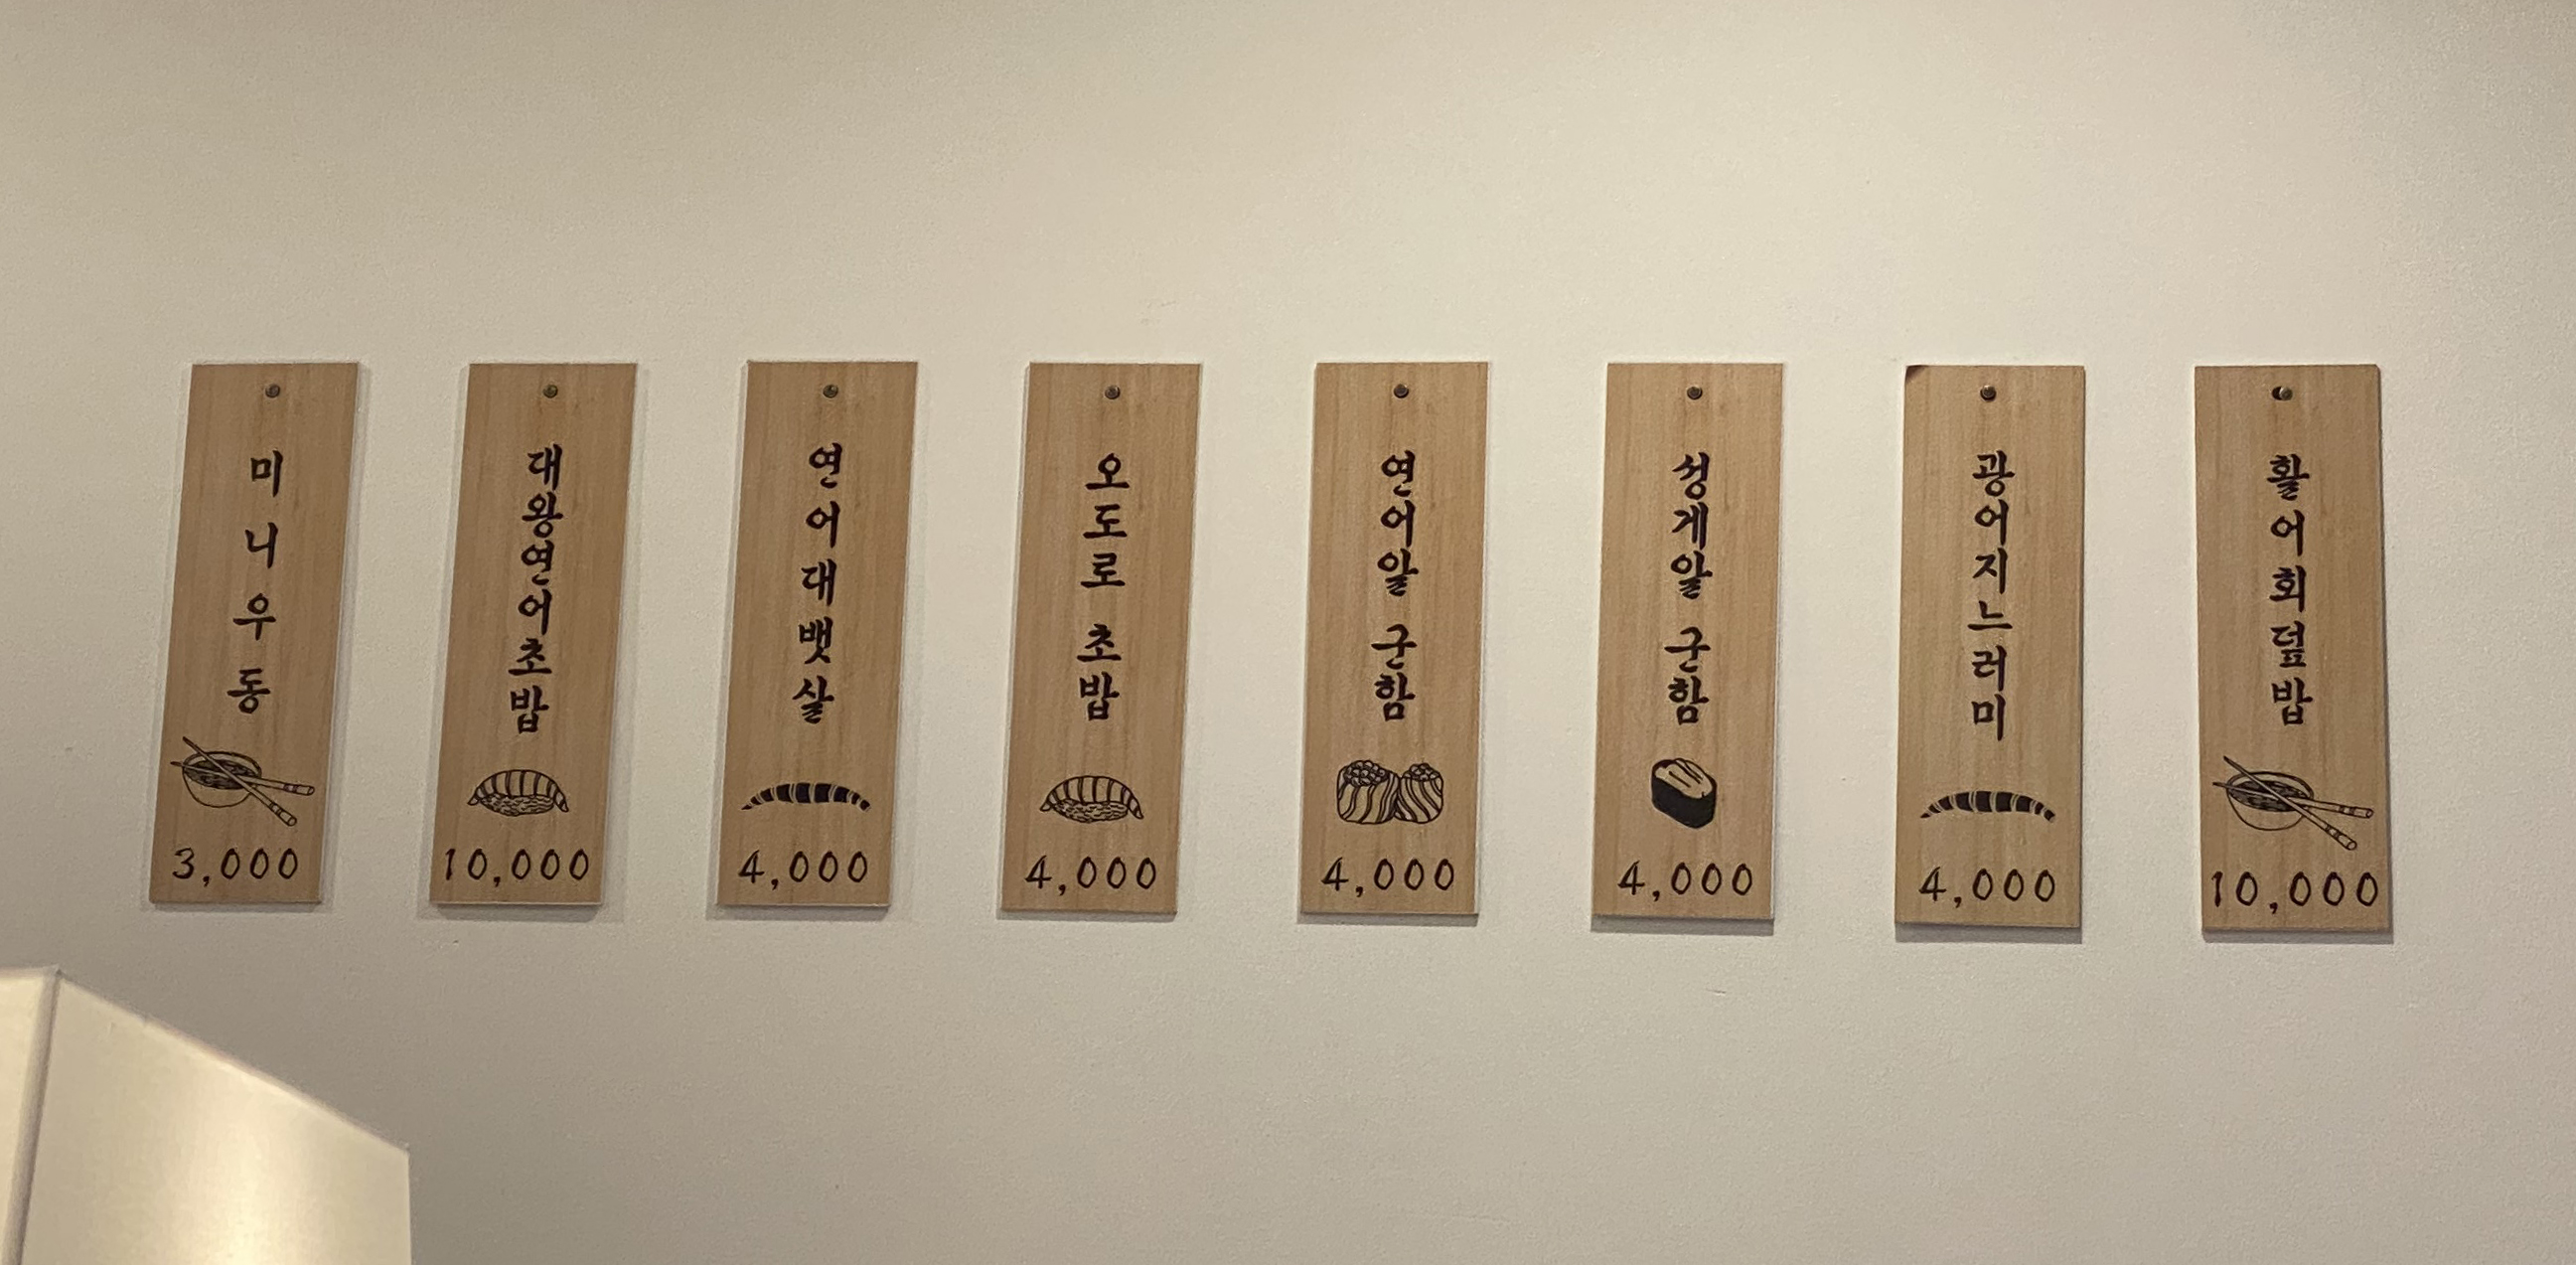 미니우동
3,000
대왕연어초밥
10,000
연어대뱃살
4,000
오도로 초밥
4,000
연어알 군함
4,000
성게알 군함
4,000
광어지느러미
4,000
활어회덮밥
10,000